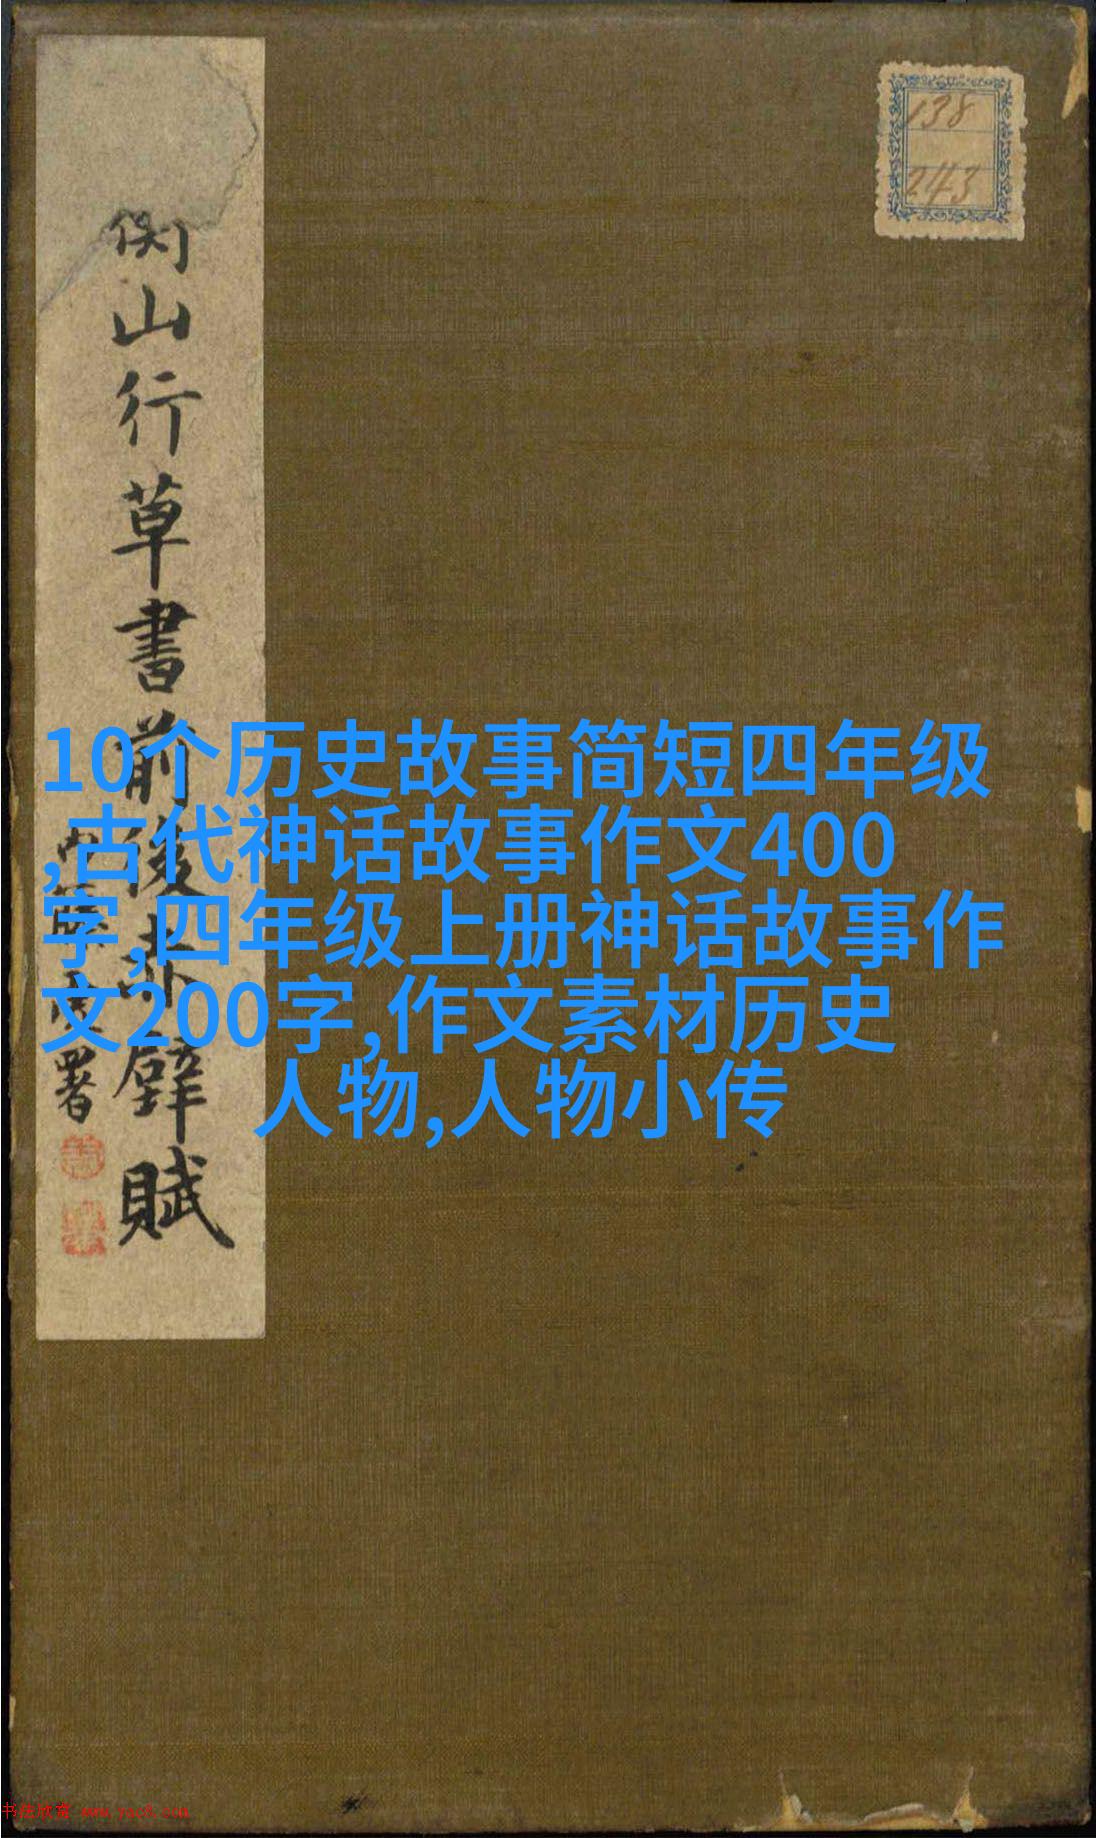 山行草書前後赤壁賦
署
138
243
10个历史故事简短四年级
,古代神话故事作文400
字,四年级上册神话故事作
文200字,作文素材历史
人物,人物小传
书法欣赏 www.yac8.com